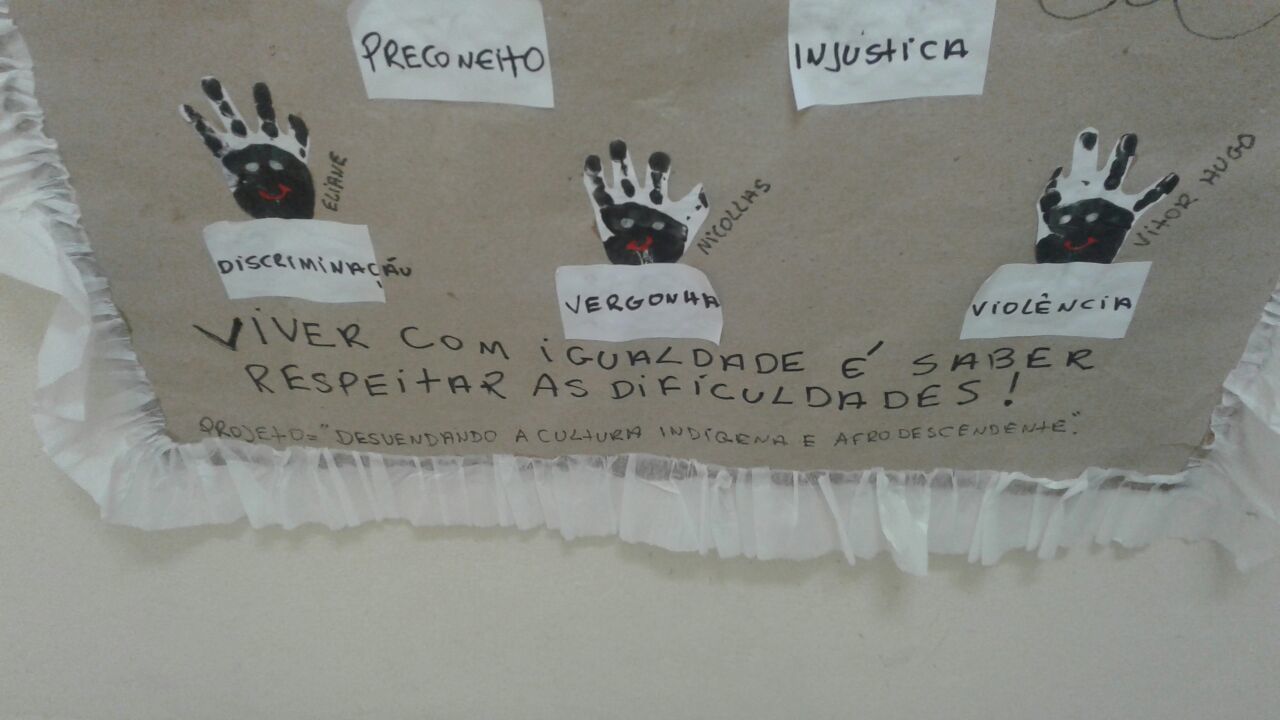 PRECONEITO
INJUSTICA
ELIANE
NICOLLAS
VITOR HUGO
DISCRIMINAÇÃO
VERGONHA
VIOLÊNCIA
VIVER COM IGUALDADE É SABER
RESPEITAR AS DIFICULDADES!
PROJETO="DESVENDANDO A CULTURA INDÍGENA E AFRODESCENDENTE".